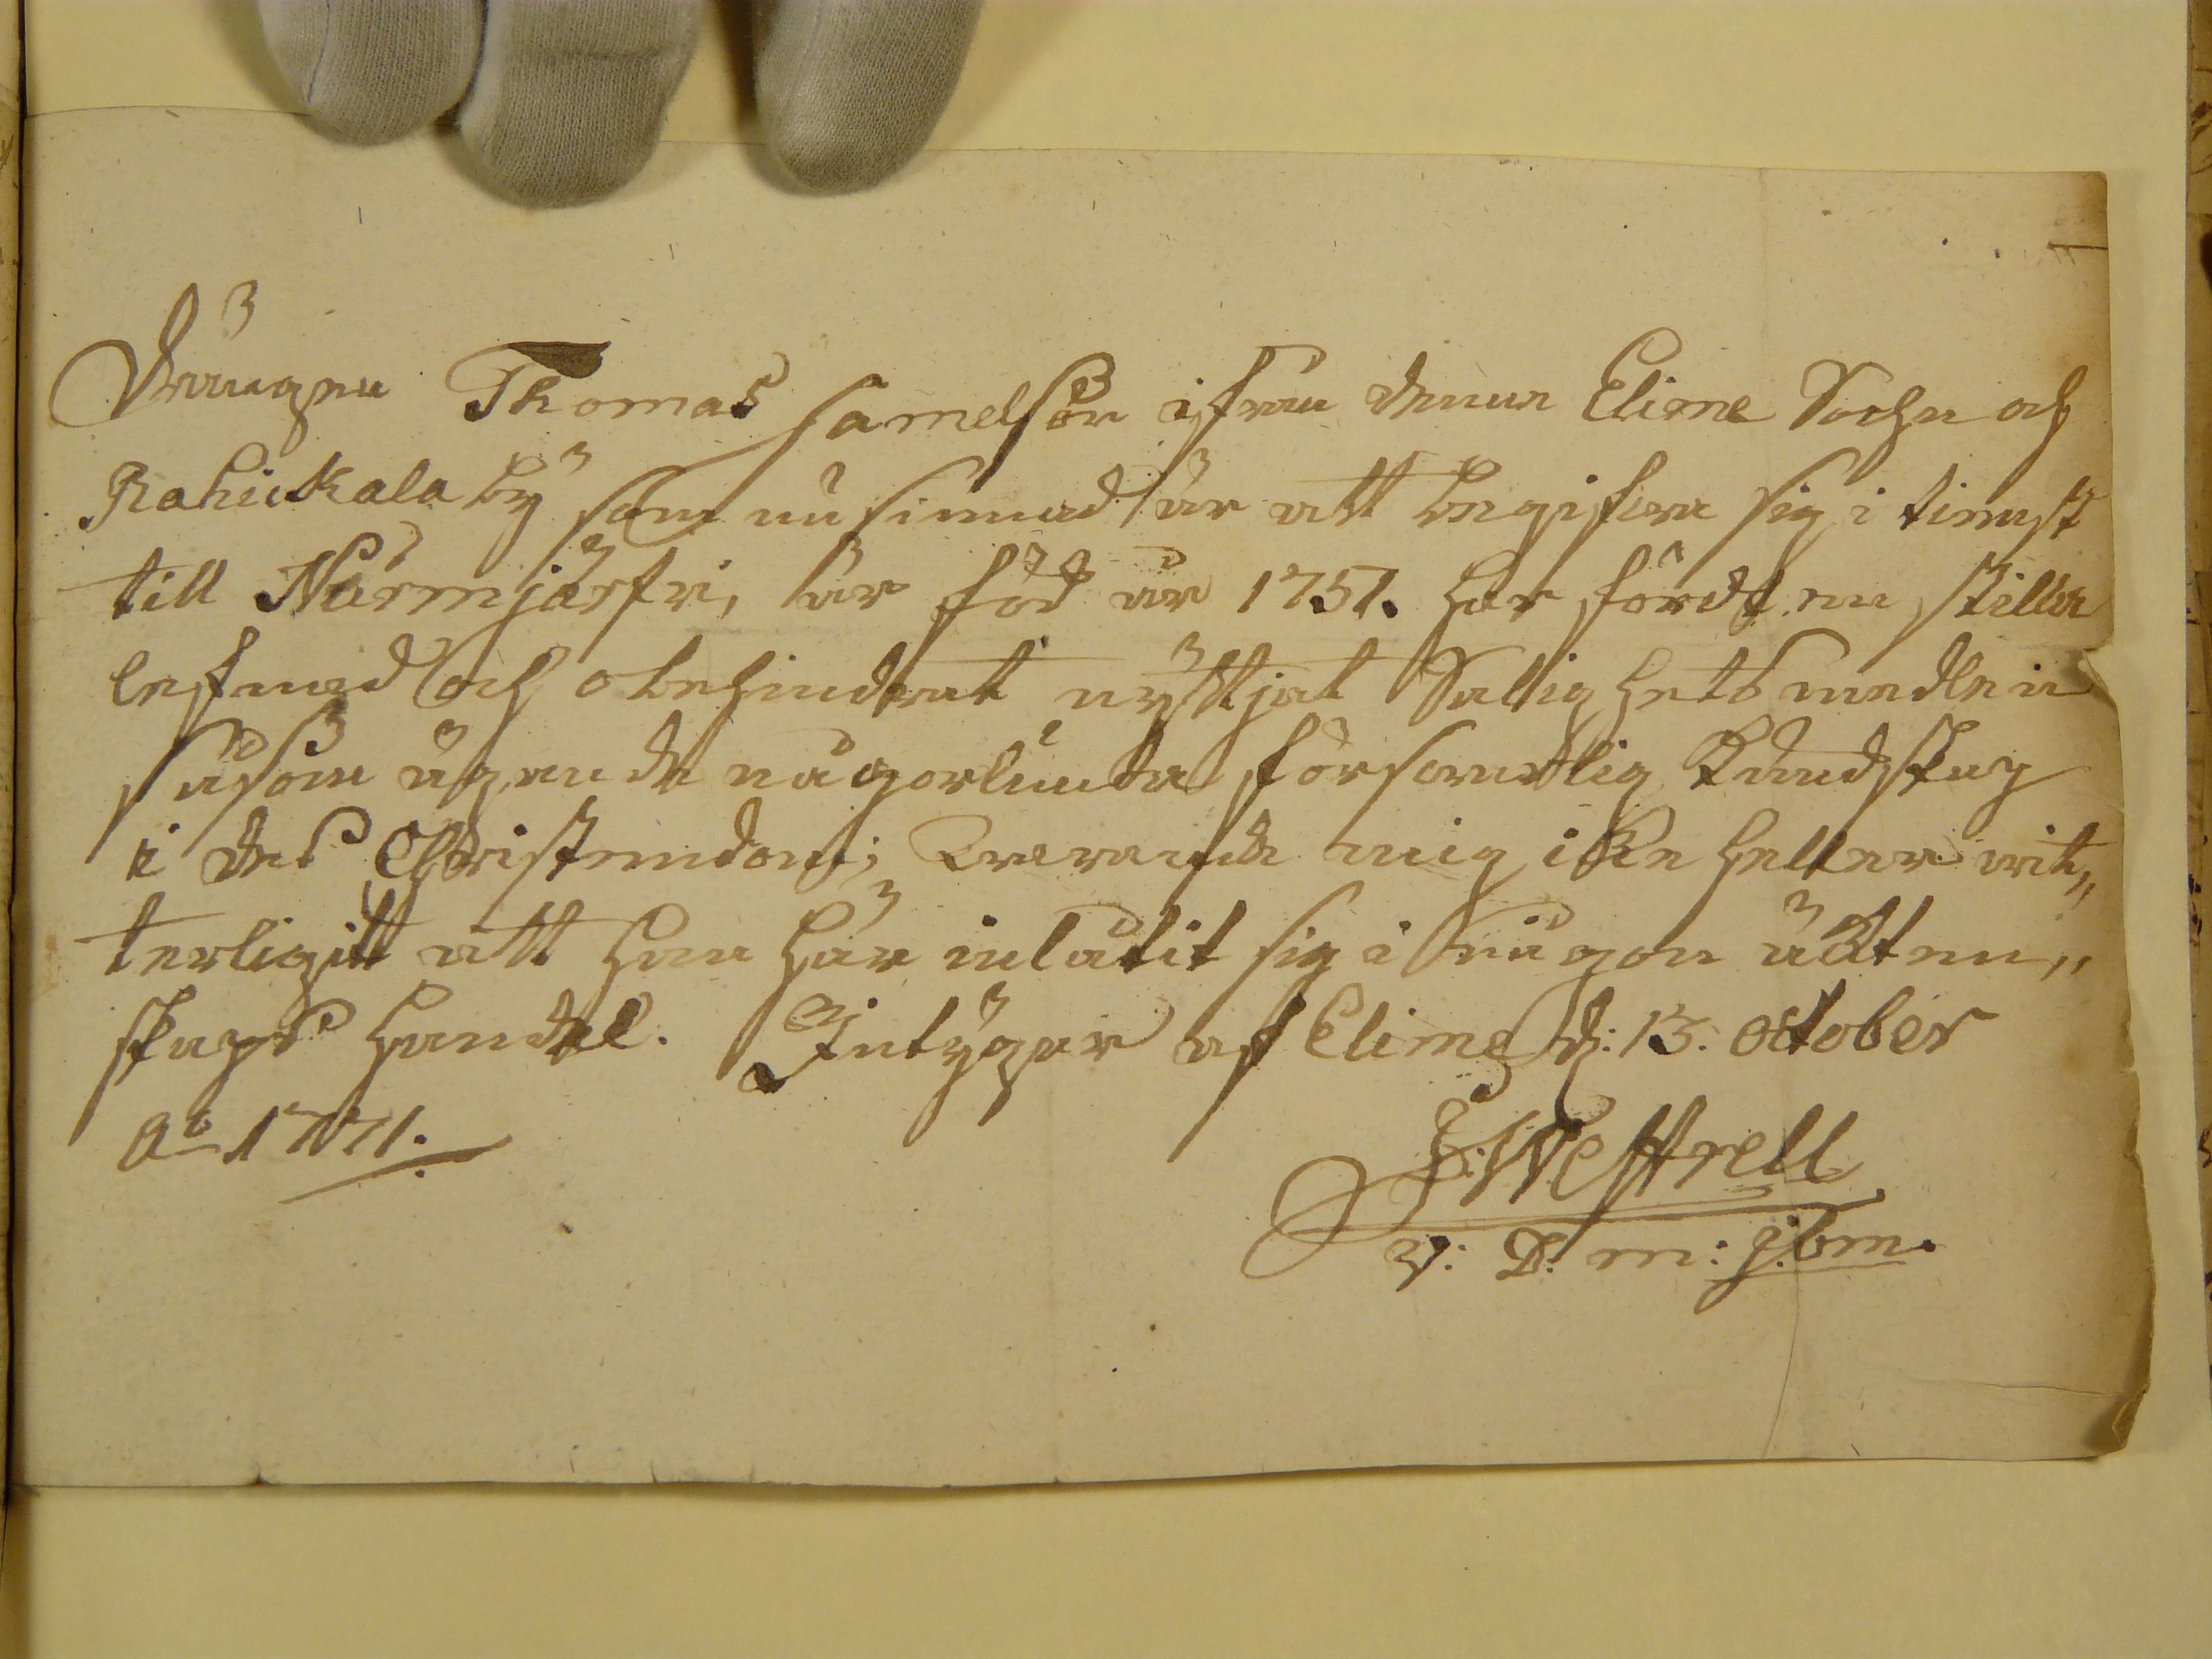 Drängen Thomas Samelsån ifrån denna Elime Sochn och
Rahickala by som nu sinnad är att begifva sig i tienst
till Nurmjärfvi, är föd år 1751. har fördt en stilla
lefnad och obehindrat nyttjat Salighets medlen
såsom ägande någorlunda försvarlig Kundskap
i des Christendom; warande mig icke heller wit„
terligitt att han här inlåtit sig i någon äckten„
skaps handel. Intÿgar af Elime d: 13. October
Ao 1771.
J: Weffrell
V: D. m: ibm.